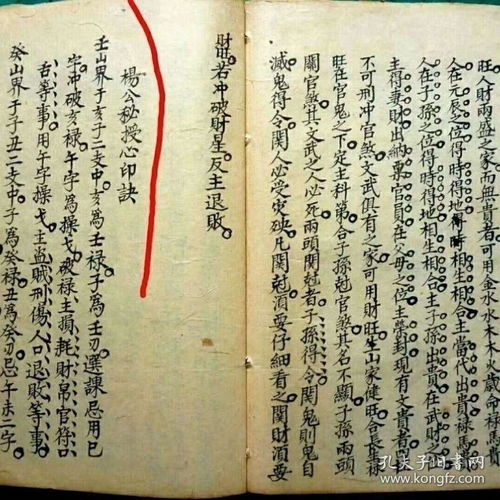 旺人財兩盛之家而無貴者可用金水水木木火歲命禄馬貴
人在元辰之位得時得地相生相合主當代出貴禄馬貴
人在子孫之位得時得地相生相合主子孫出貴在武財
主得妻財出納萬官員在父母之位主榮封現有文貴者
不可刑冲官煞文武俱有之家可用財旺生山家健旺合長生禄
旺在官鬼之下定主科第合子孫尅官煞其名不顯子孫兩頭
關官煞其文武之人必死兩頭関尅者子孫得令関鬼則鬼自
滅鬼得令関人必受灾殃凡関尅須要仔細看之関財須要
財旺若冲破財星反主退敗
楊公秘授心印訣
壬山界于亥子二支中亥為壬禄子為壬刃選課忌用巳
字冲破亥禄午字為操戈破禄主損耗財帛官符口
舌等事用午字操戈主盗賊刑傷人口退敗等事
癸山界于子丑二支中子為癸禄丑為癸刃忌午未二字
孔夫子旧书网
www.kongfz.com